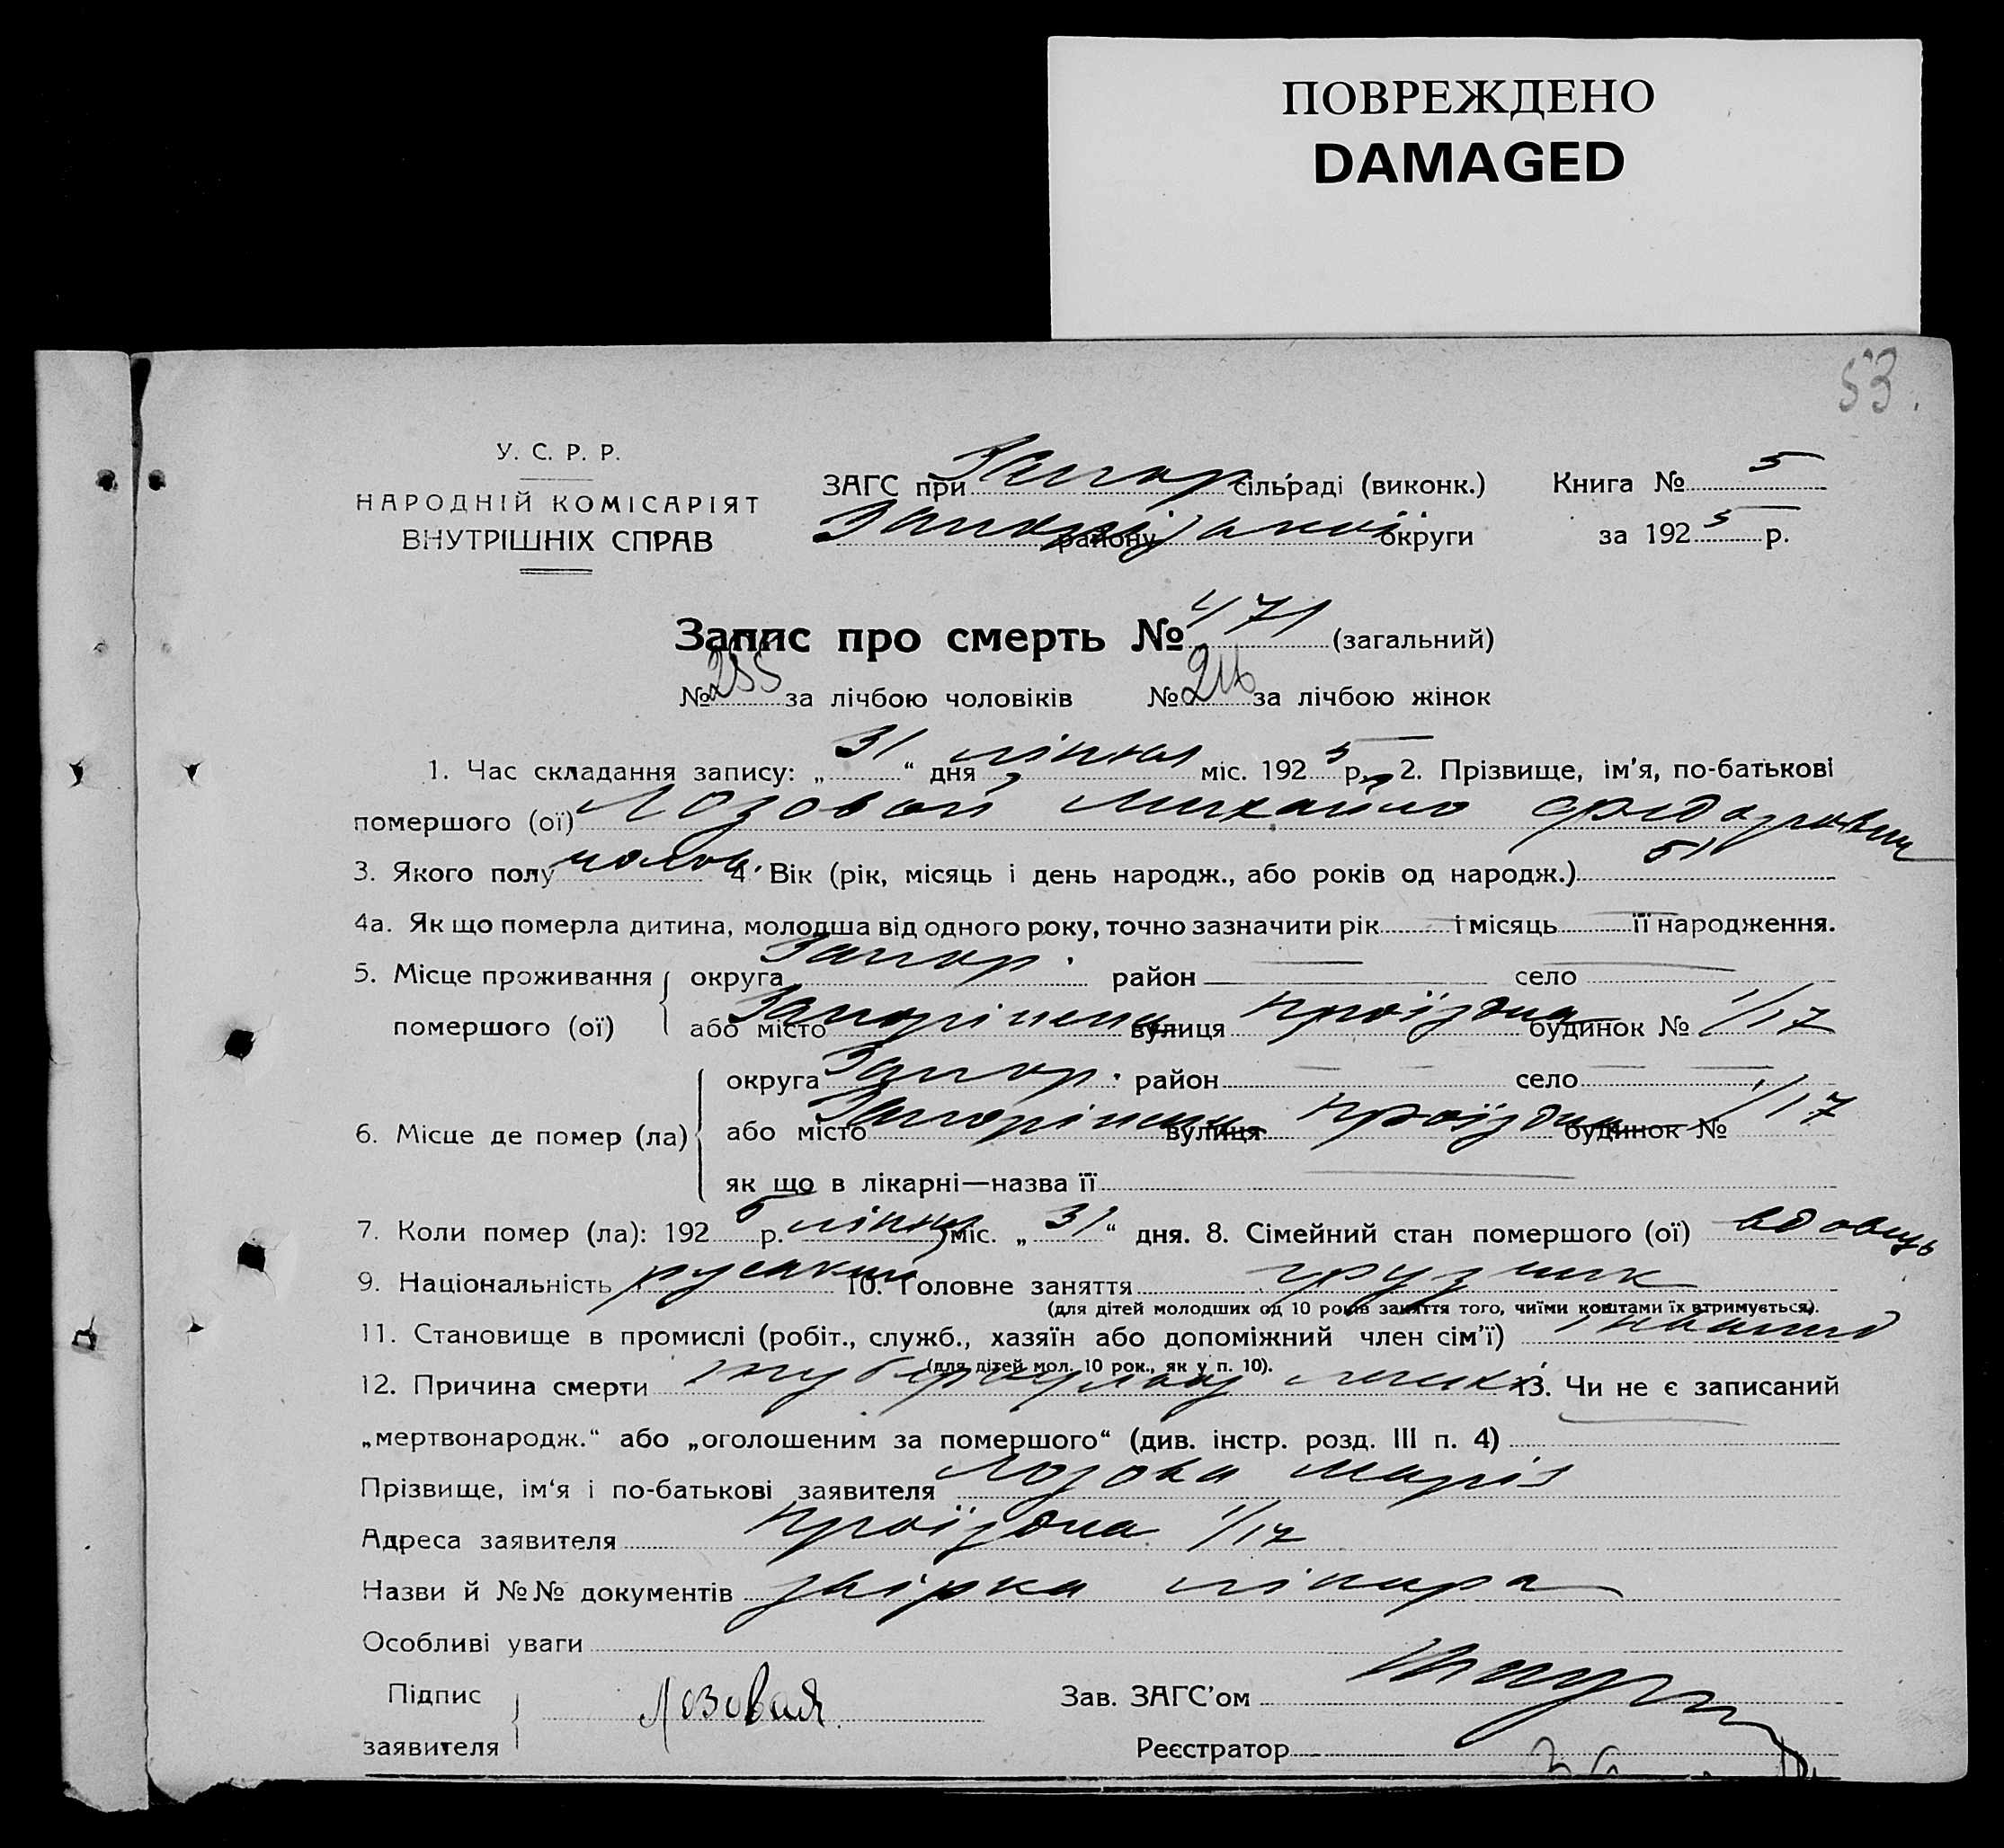 ПОВРЕЖДЕНО
DAMAGED
53.
У. С. Р. Р.
НАРОДНІЙ КОМІСАРІЯТ
ВНУТРІШНІХ СПРАВ
ЗАГС при Запор сільраді (виконк.)
району округи
Книга № 5
за 192 5 р.
Запис про смерть № 471 (загальний)
№ 255 за лічбою чоловіків № 216 за лічбою жінок
1. Час складання запису: „ 31 “ дня липня міс. 192 5 р. 2. Прізвище, ім'я, по-батькові
помершого (ої) Лозовой Михайло Федорович
3. Якого полу чолов. 4. Вік (рік, місяць і день народж., або років од народж.) 51
4а. Як що померла дитина, молодша від одного року, точно зазначити рік і місяць її народження.
5. Місце проживання помершого (ої) округа Запор. район село
або місто Запоріжжя вулиця Проїздна будинок № 1/17
6. Місце де помер (ла) округа Запор. район село
або місто Запоріжжя вулиця Проїздна будинок № 1/17
як що в лікарні—назва її
7. Коли помер (ла): 192 5 р. липня міс. „ 31 “ дня. 8. Сімейний стан помершого (ої) вдовець
9. Національність руський 10. Головне заняття грузчик
(для дітей молодших од 10 років заняття того, чиїми коштами їх втримується).
11. Становище в промислі (робіт., служб., хазяїн або допоміжний член сім'ї) інвалид
(для дітей мол. 10 рок., як у п. 10).
12. Причина смерти туберкульоз легких 13. Чи не є записаний
„мертвонародж.“ або „оголошеним за помершого“ (див. інстр. розд. III п. 4)
Прізвище, ім'я і по-батькові заявителя Лозова Марія
Адреса заявителя Проїздна 1/17
Назви й №№ документів лікаря
Особливі уваги
Підпис заявителя Лозовая.
Зав. ЗАГС'ом
Реєстратор